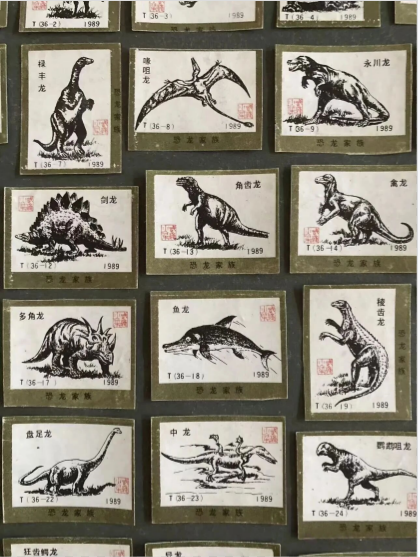 T(36-2) 1989
T(36-3) 1989
T(36-4) 1989
禄丰龙
T(36-7) 1989
恐龙家族
喙咀龙
T(36-8) 1989
恐龙家族
永川龙
T(36-9) 1989
恐龙家族
剑龙
T(36-12) 1989
恐龙家族
角齿龙
T(36-13) 1989
恐龙家族
禽龙
T(36-14) 1989
恐龙家族
多角龙
T(36-17) 1989
恐龙家族
鱼龙
T(36-18) 1989
恐龙家族
棱齿龙
T(36-19) 1989
恐龙家族
盘足龙
T(36-22) 1989
恐龙家族
中龙
T(36-23) 1989
恐龙家族
鹦鹉咀龙
T(36-24) 1989
恐龙家族
狂齿鳄龙